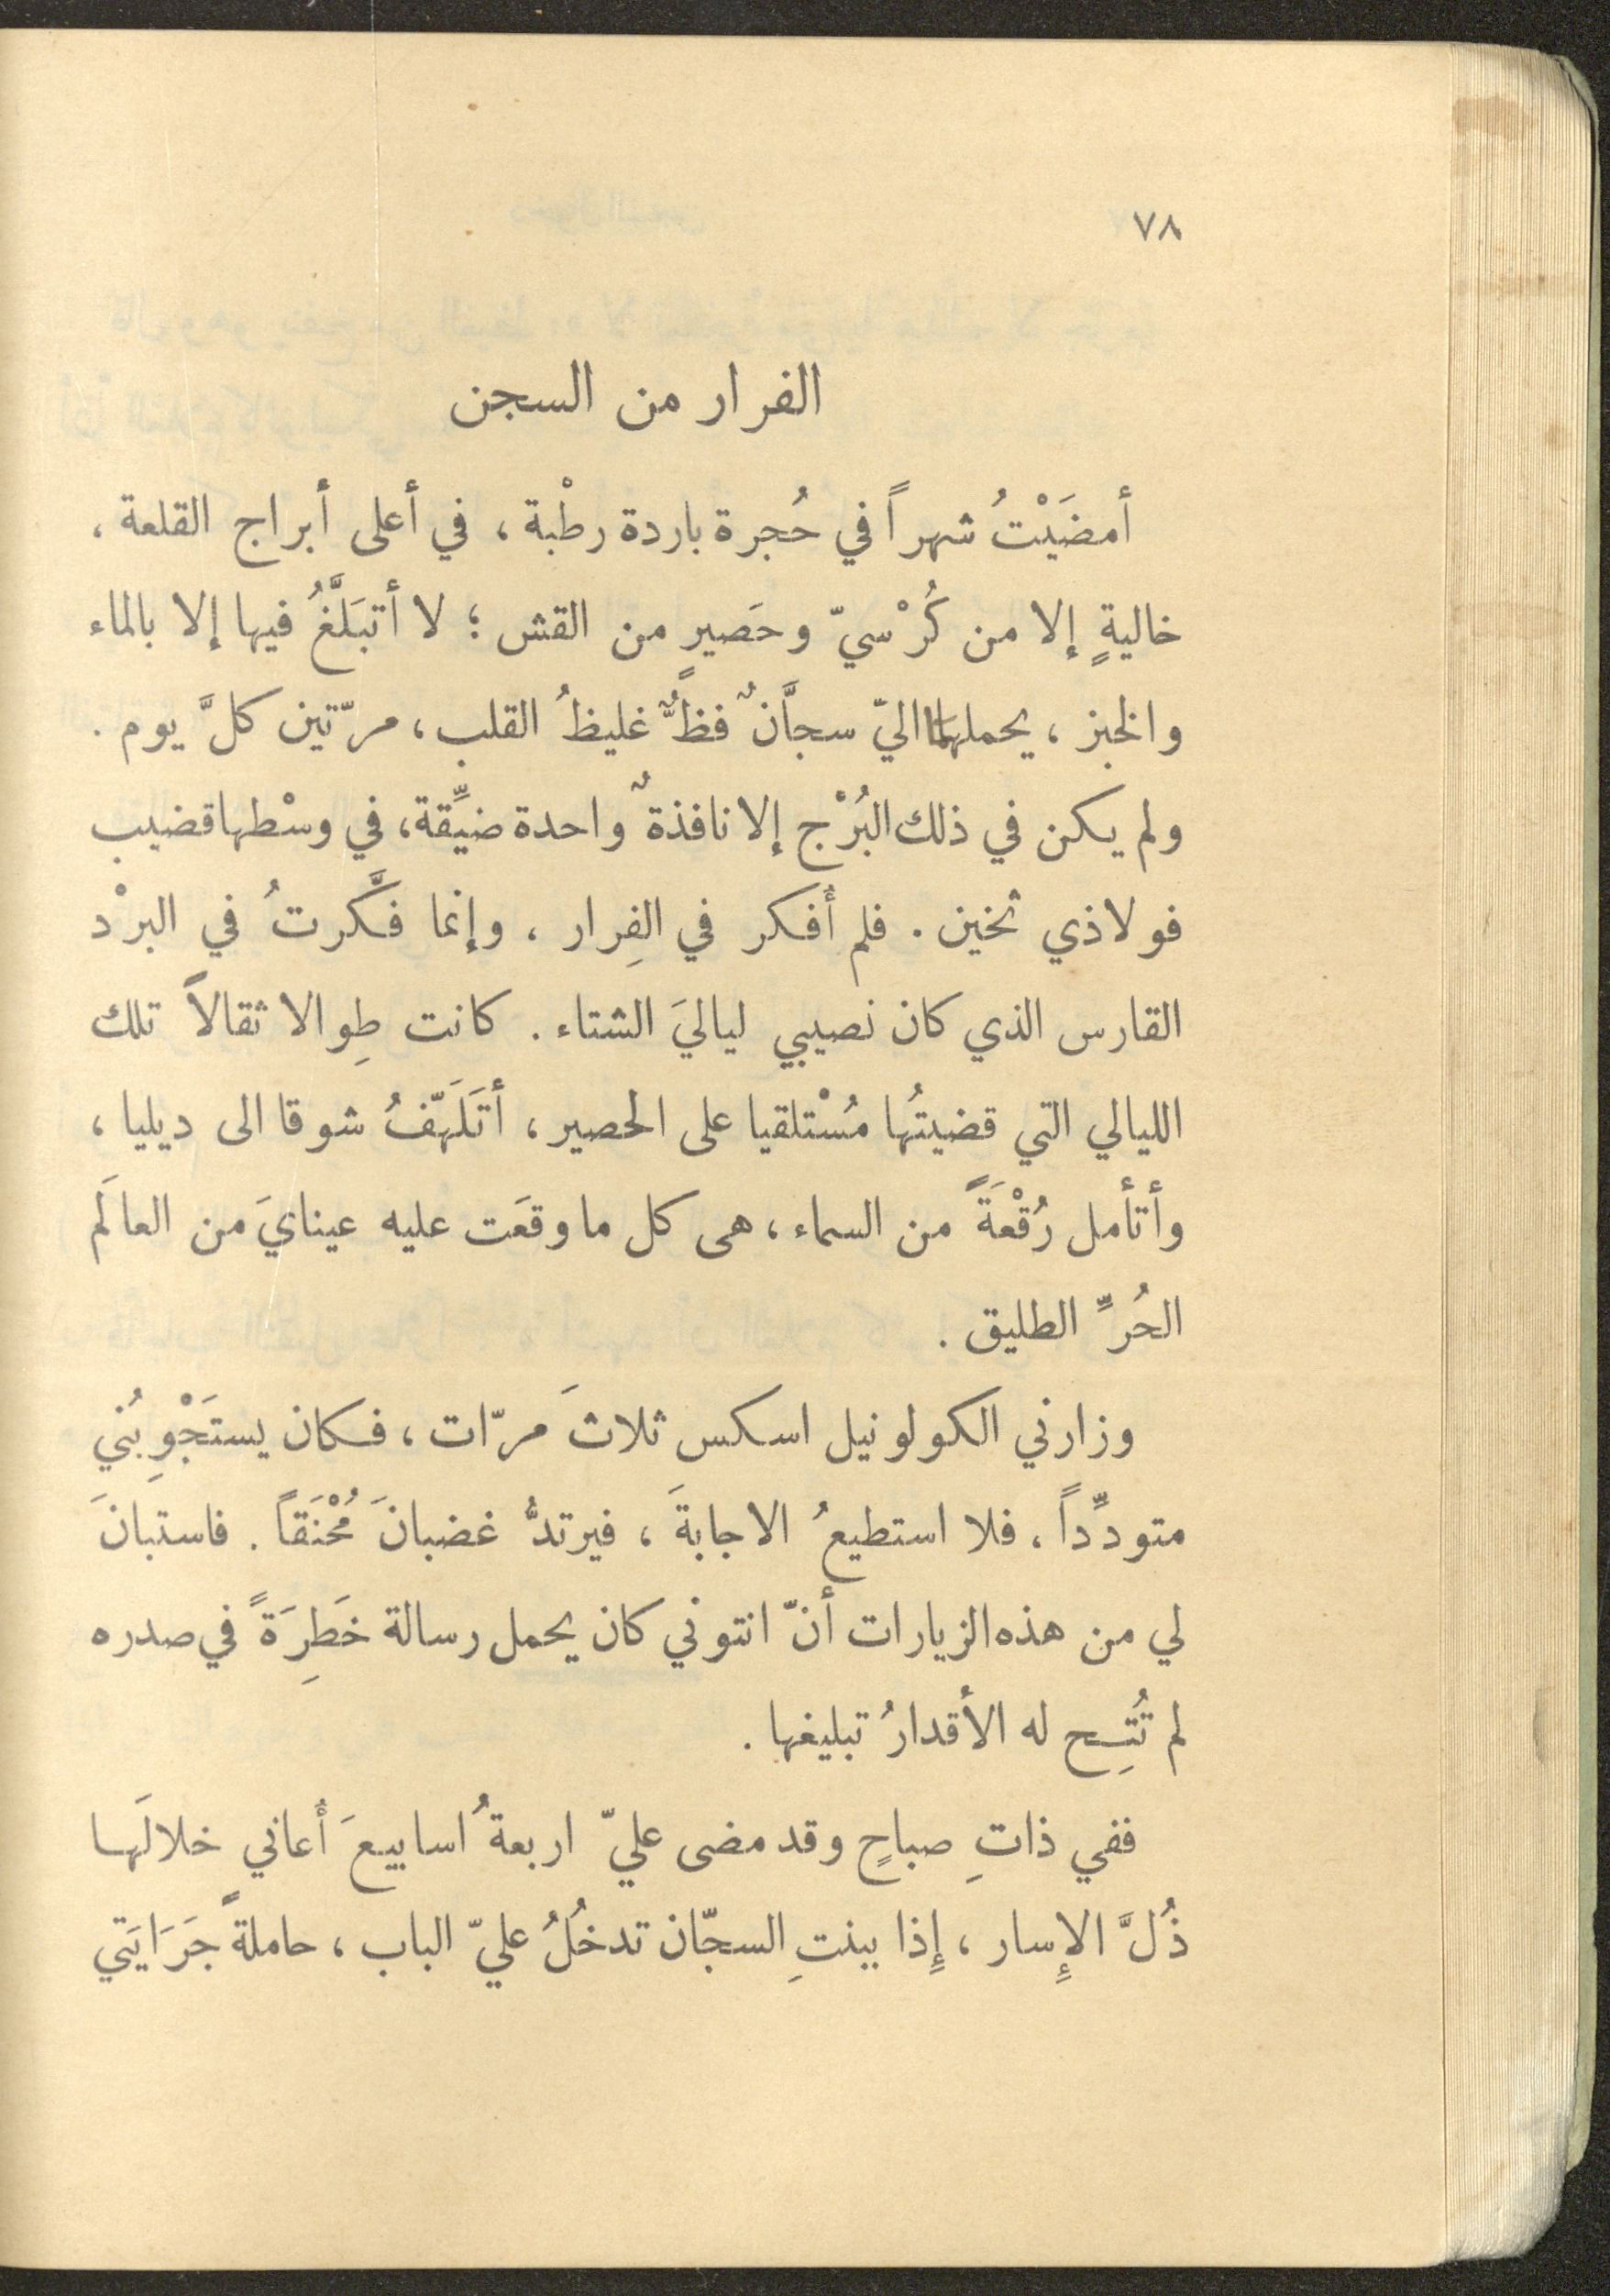 ٧٨
الفرار من السجن
أمضَيْتُ شهراً في حُجرة باردة رطْبة ، في أعلى أبراج القلعة ،
خاليةٍ إلا من كُرْسيّ وحَصيرٍ من القش ؛ لا أتبَلَّغُ فيها إلا بالماء
والخبز ، يحملهما اليّ سجاَّنٌ فظٌّ غليظُ القلب ، مرّتين كلَّ يوم .
ولم يكن في ذلك البُرْج إلا نافذةٌ واحدة ضيِّقة ، في وسْطها قضيب
فولاذي ثخين . فلم أُفكر في الفِرار ، وإنما فكَّرتُ في البرْد
القارس الذي كان نصيبي لياليَ الشتاء . كانت طِوالا ثقالاً تلك
الليالي التي قضيتُها مُسْتلقيا على الحصير ، أتَلَهّفُ شوقا الى ديليا ،
وأتأمل رُقْعَةً من السماء ، هى كل ما وقعَت عليه عينايَ من العالَم
الحُرِّ الطليق .
وزارني الكولونيل اسكس ثلاثَ مرّات ، فكان يستَجْوِبُني
متودِّداً ، فلا استطيعُ الاجابةَ ، فيرتدُّ غضبانَ مُحْنَقاً . فاستبانَ
لي من هذه الزيارات أنّ انتوني كان يحمل رسالة خَطِرَةً في صدره
لم تُتِح له الأقدارُ تبليغها .
ففي ذاتِ صباحٍ وقد مضى عليّ اربعةُ اسابيعَ أُعاني خلالَها
ذُلَّ الإِسار ، إِذا ببنتِ السجّان تدخُلُ عليّ الباب ، حاملةً جَرَايَتي